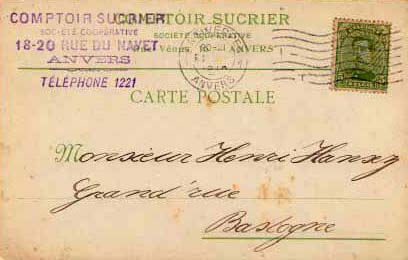 COMPTOIR SUCRIER
SOCIÉTÉ COOPÉRATIVE
18-20 RUE DU NAVET
ANVERS
TÉLÉPHONE 1221
COMPTOIR SUCRIER
SOCIÉTÉ COOPÉRATIVE
Vénus, ANVERS
ANVERS
CARTE POSTALE
Monsieur Henri Hansez
Grand'rue
Bastogne